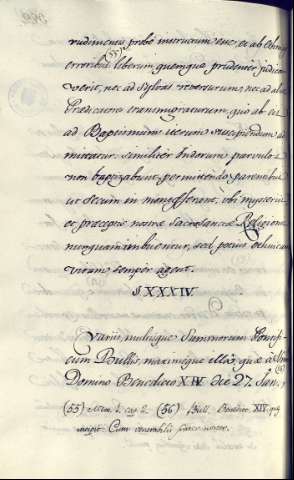 rudimentis probè instructum esse, et ab Ethnicis
erroribus (55) liberum, quemque prudenter judica
verit, nec ad Sylvas reversurum, nec ad alios
transmigraturum, quo ab eo
ad Baptismum iterum suscipiendum ad
mittatur. Similiter Indorum parvulos
non baptizabunt, permittendo parentibus
ut secum in montes ferant, ubi mysteriis
et præceptis nostræ Sacrosanctæ Religionis
nunquam imbuentur, sed potius ethnicam
vitam semper agent.
§. XXXIV.
Variis, multisque Summorum Pontifi
cum Bullis, maximeque illâ, quæ à
Domino Benedicto XIV. die 27. Jan.
(55) cap. 2. (56) Bull. Benedic. XIV. quæ
incipit Cum venerabilis